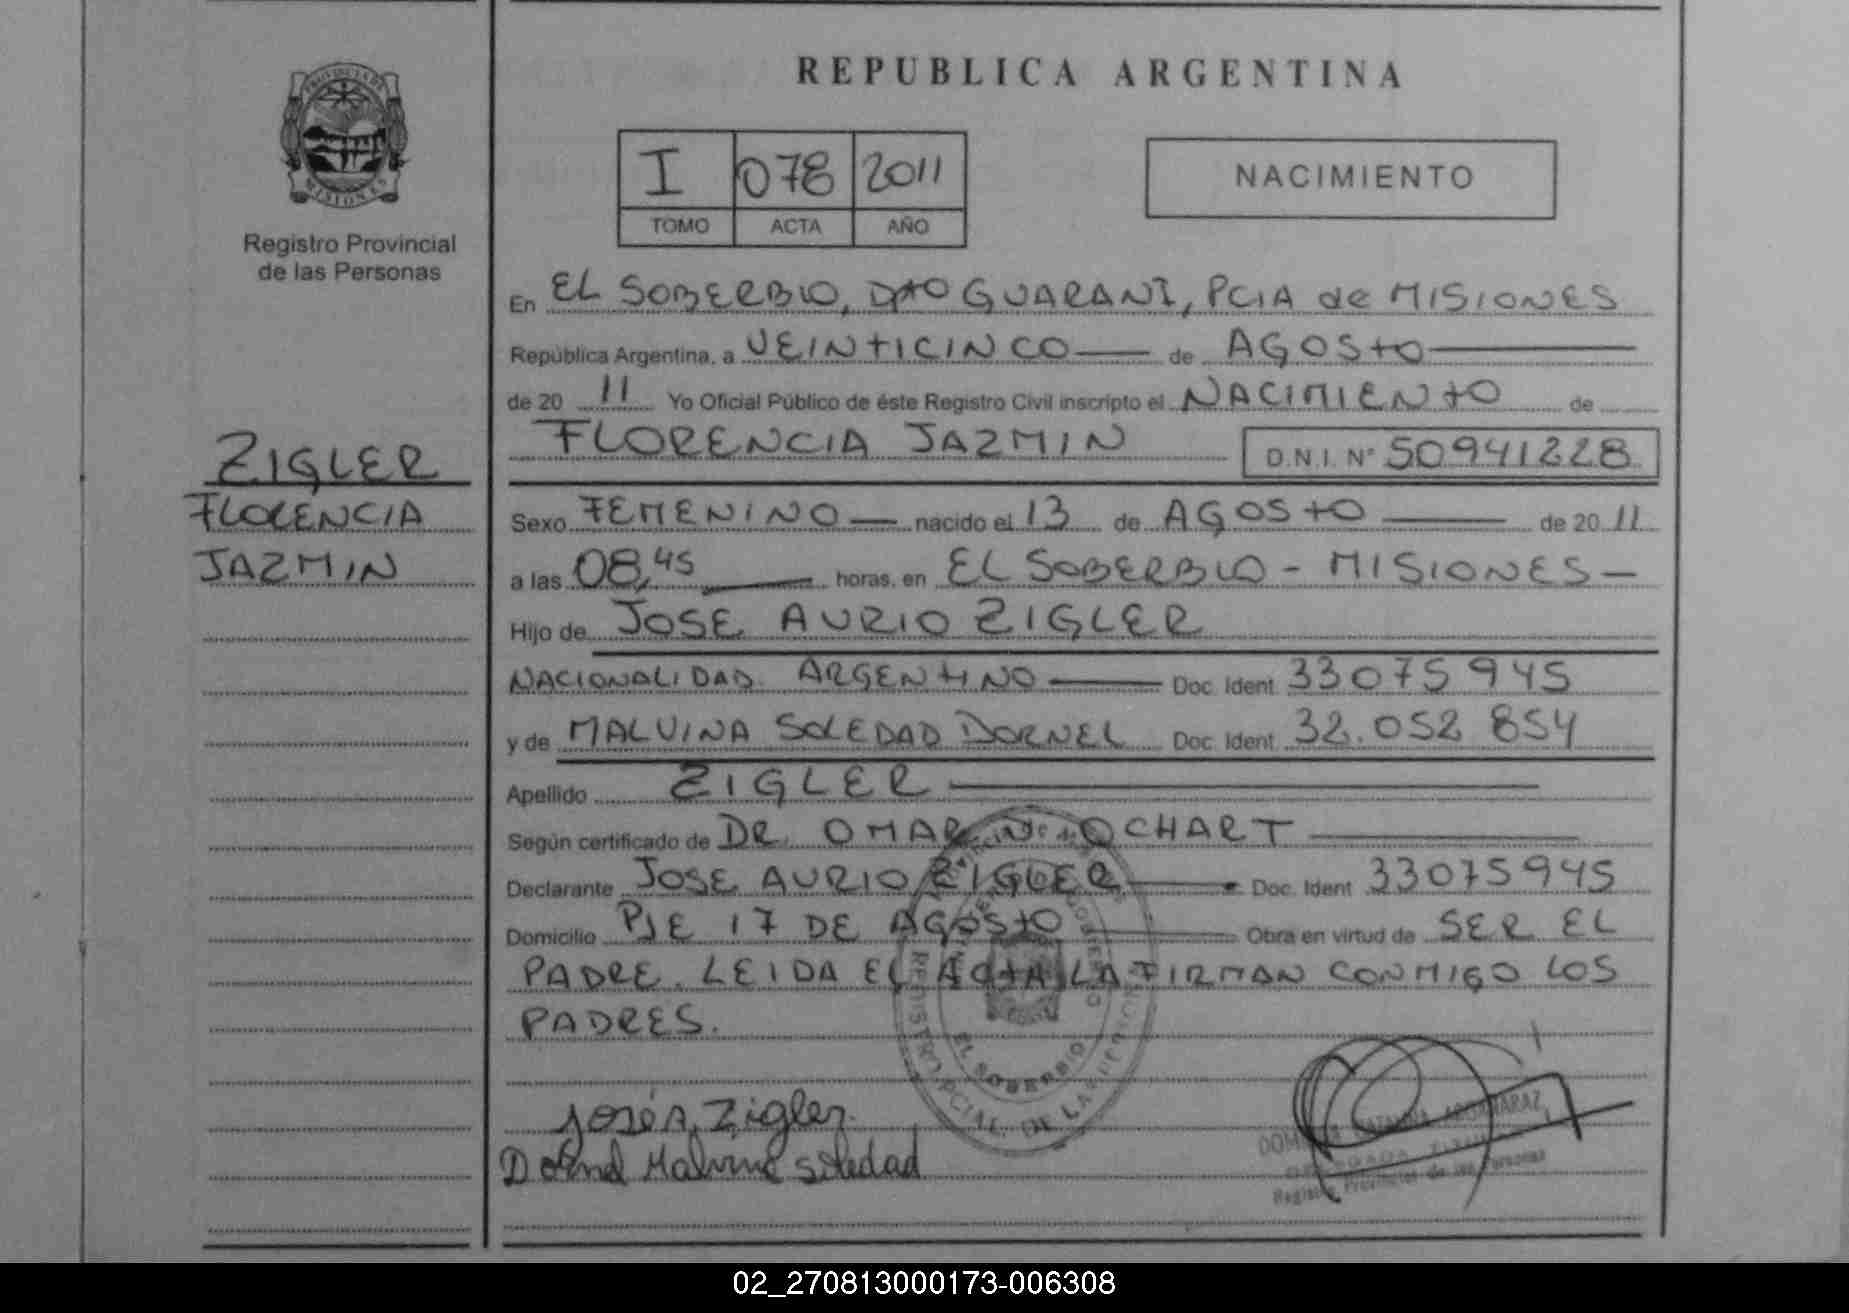 PROVINCIA DE
MISIONES
Registro Provincial
de las Personas
ZIGLER
FLORENCIA
JAZMIN
REPUBLICA ARGENTINA
I 078 2011
TOMO ACTA AÑO
NACIMIENTO
En EL SOBERBIO, DTO GUARANI, PCIA de MISIONES
República Argentina, a VEINTICINCO de AGOSTO
de 20 11 Yo Oficial Público de éste Registro Civil inscripto el NACIMIENTO de
FLORENCIA JAZMIN D.N.I. N° 50941228
Sexo FEMENINO nacido el 13 de AGOSTO de 20 11
a las 08,45 horas, en EL SOBERBIO - MISIONES -
Hijo de JOSE AURIO ZIGLER
NACIONALIDAD ARGENTINO Doc. Ident 33075945
y de MALVINA SOLEDAD DORNEL Doc. Ident 32.052 854
Apellido ZIGLER
Según certificado de DR. OMAR OCHART
Declarante JOSE AURIO ZIGLER Doc. Ident 33075945
Domicilio PJE 17 DE AGOSTO Obra en virtud de SER EL
PADRE. LEIDA EL ACTA LA FIRMAN CONMIGO LOS
PADRES.
EL SOBERBIO
REGISTRO PCIAL. DE LAS
José A. Zigler.
Dornel Malvina Soledad
Registro Provincial de las Personas
02_270813000173-006308